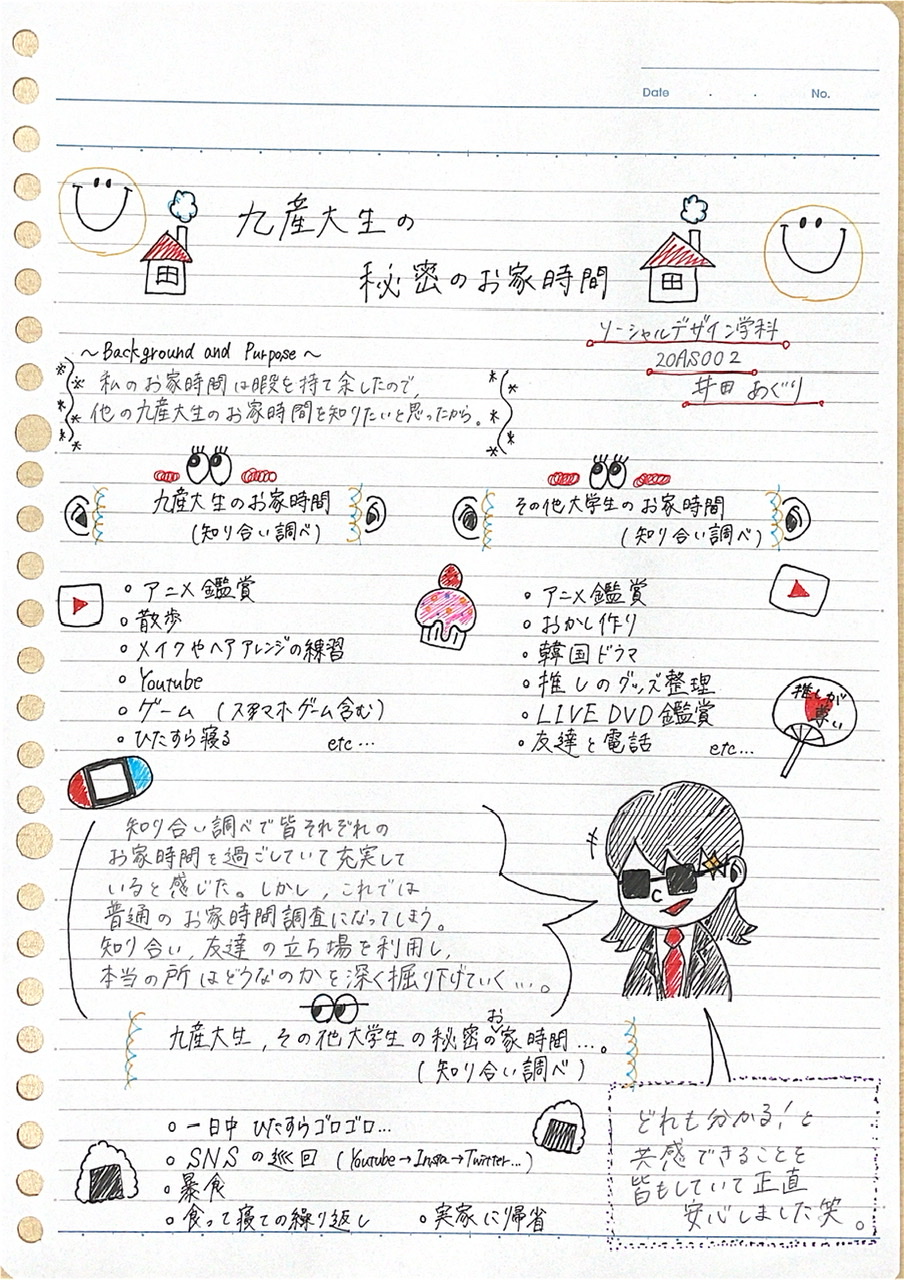 Date . . No.
九産大生の
秘密のお家時間
ソーシャルデザイン学科
20AS002
井田 めぐり
～Background and Purpose～
私のお家時間は暇を持て余したので、
他の九産大生のお家時間を知りたいと思ったから。
九産大生のお家時間
(知り合い調べ)
◦アニメ鑑賞
◦散歩
◦メイクやヘアアレンジの練習
◦Youtube
◦ゲーム (スマホゲーム含む)
◦ひたすら寝る etc…
その他大学生のお家時間
(知り合い調べ)
◦アニメ鑑賞
◦おかし作り
◦韓国ドラマ
◦推しのグッズ整理
◦LIVE DVD鑑賞
◦友達と電話 etc…
推しが
尊い
知り合い調べで皆それぞれの
お家時間を過ごしていて充実して
いると感じた。しかし、これでは
普通のお家時間調査になってしまう。
知り合い、友達の立ち場を利用し、
本当の所はどうなのかを深く掘り下げていく…。
九産大生、その他大学生の秘密のお家時間…。
(知り合い調べ)
◦一日中ひたすらゴロゴロ…
◦SNSの巡回 (Youtube→Insta→Twitter…)
◦暴食
◦食って寝ての繰り返し ◦実家に帰省
どれも分かる！と
共感できることを
皆もしていて正直
安心しました笑。